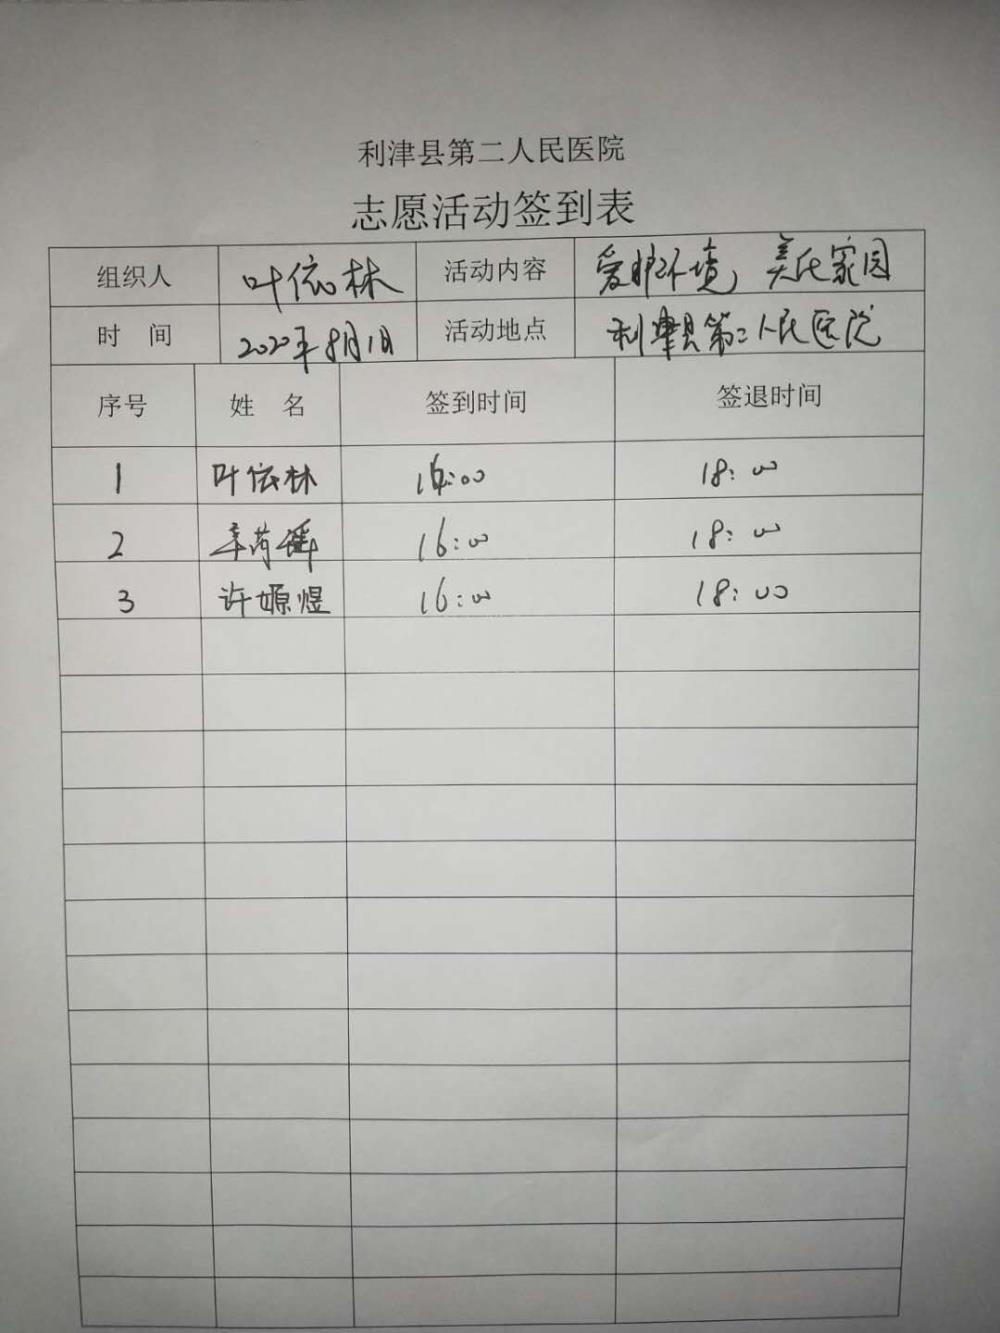 利津县第二人民医院
志愿活动签到表
组织人 叶依林 活动内容 爱护环境 美化家园
时 间 2020年8月1日 活动地点 利津县第二人民医院
序号 姓 名 签到时间 签退时间
1 叶依林 16:00 18:00
2 16:00 18:00
3 许嫄煜 16:00 18:00